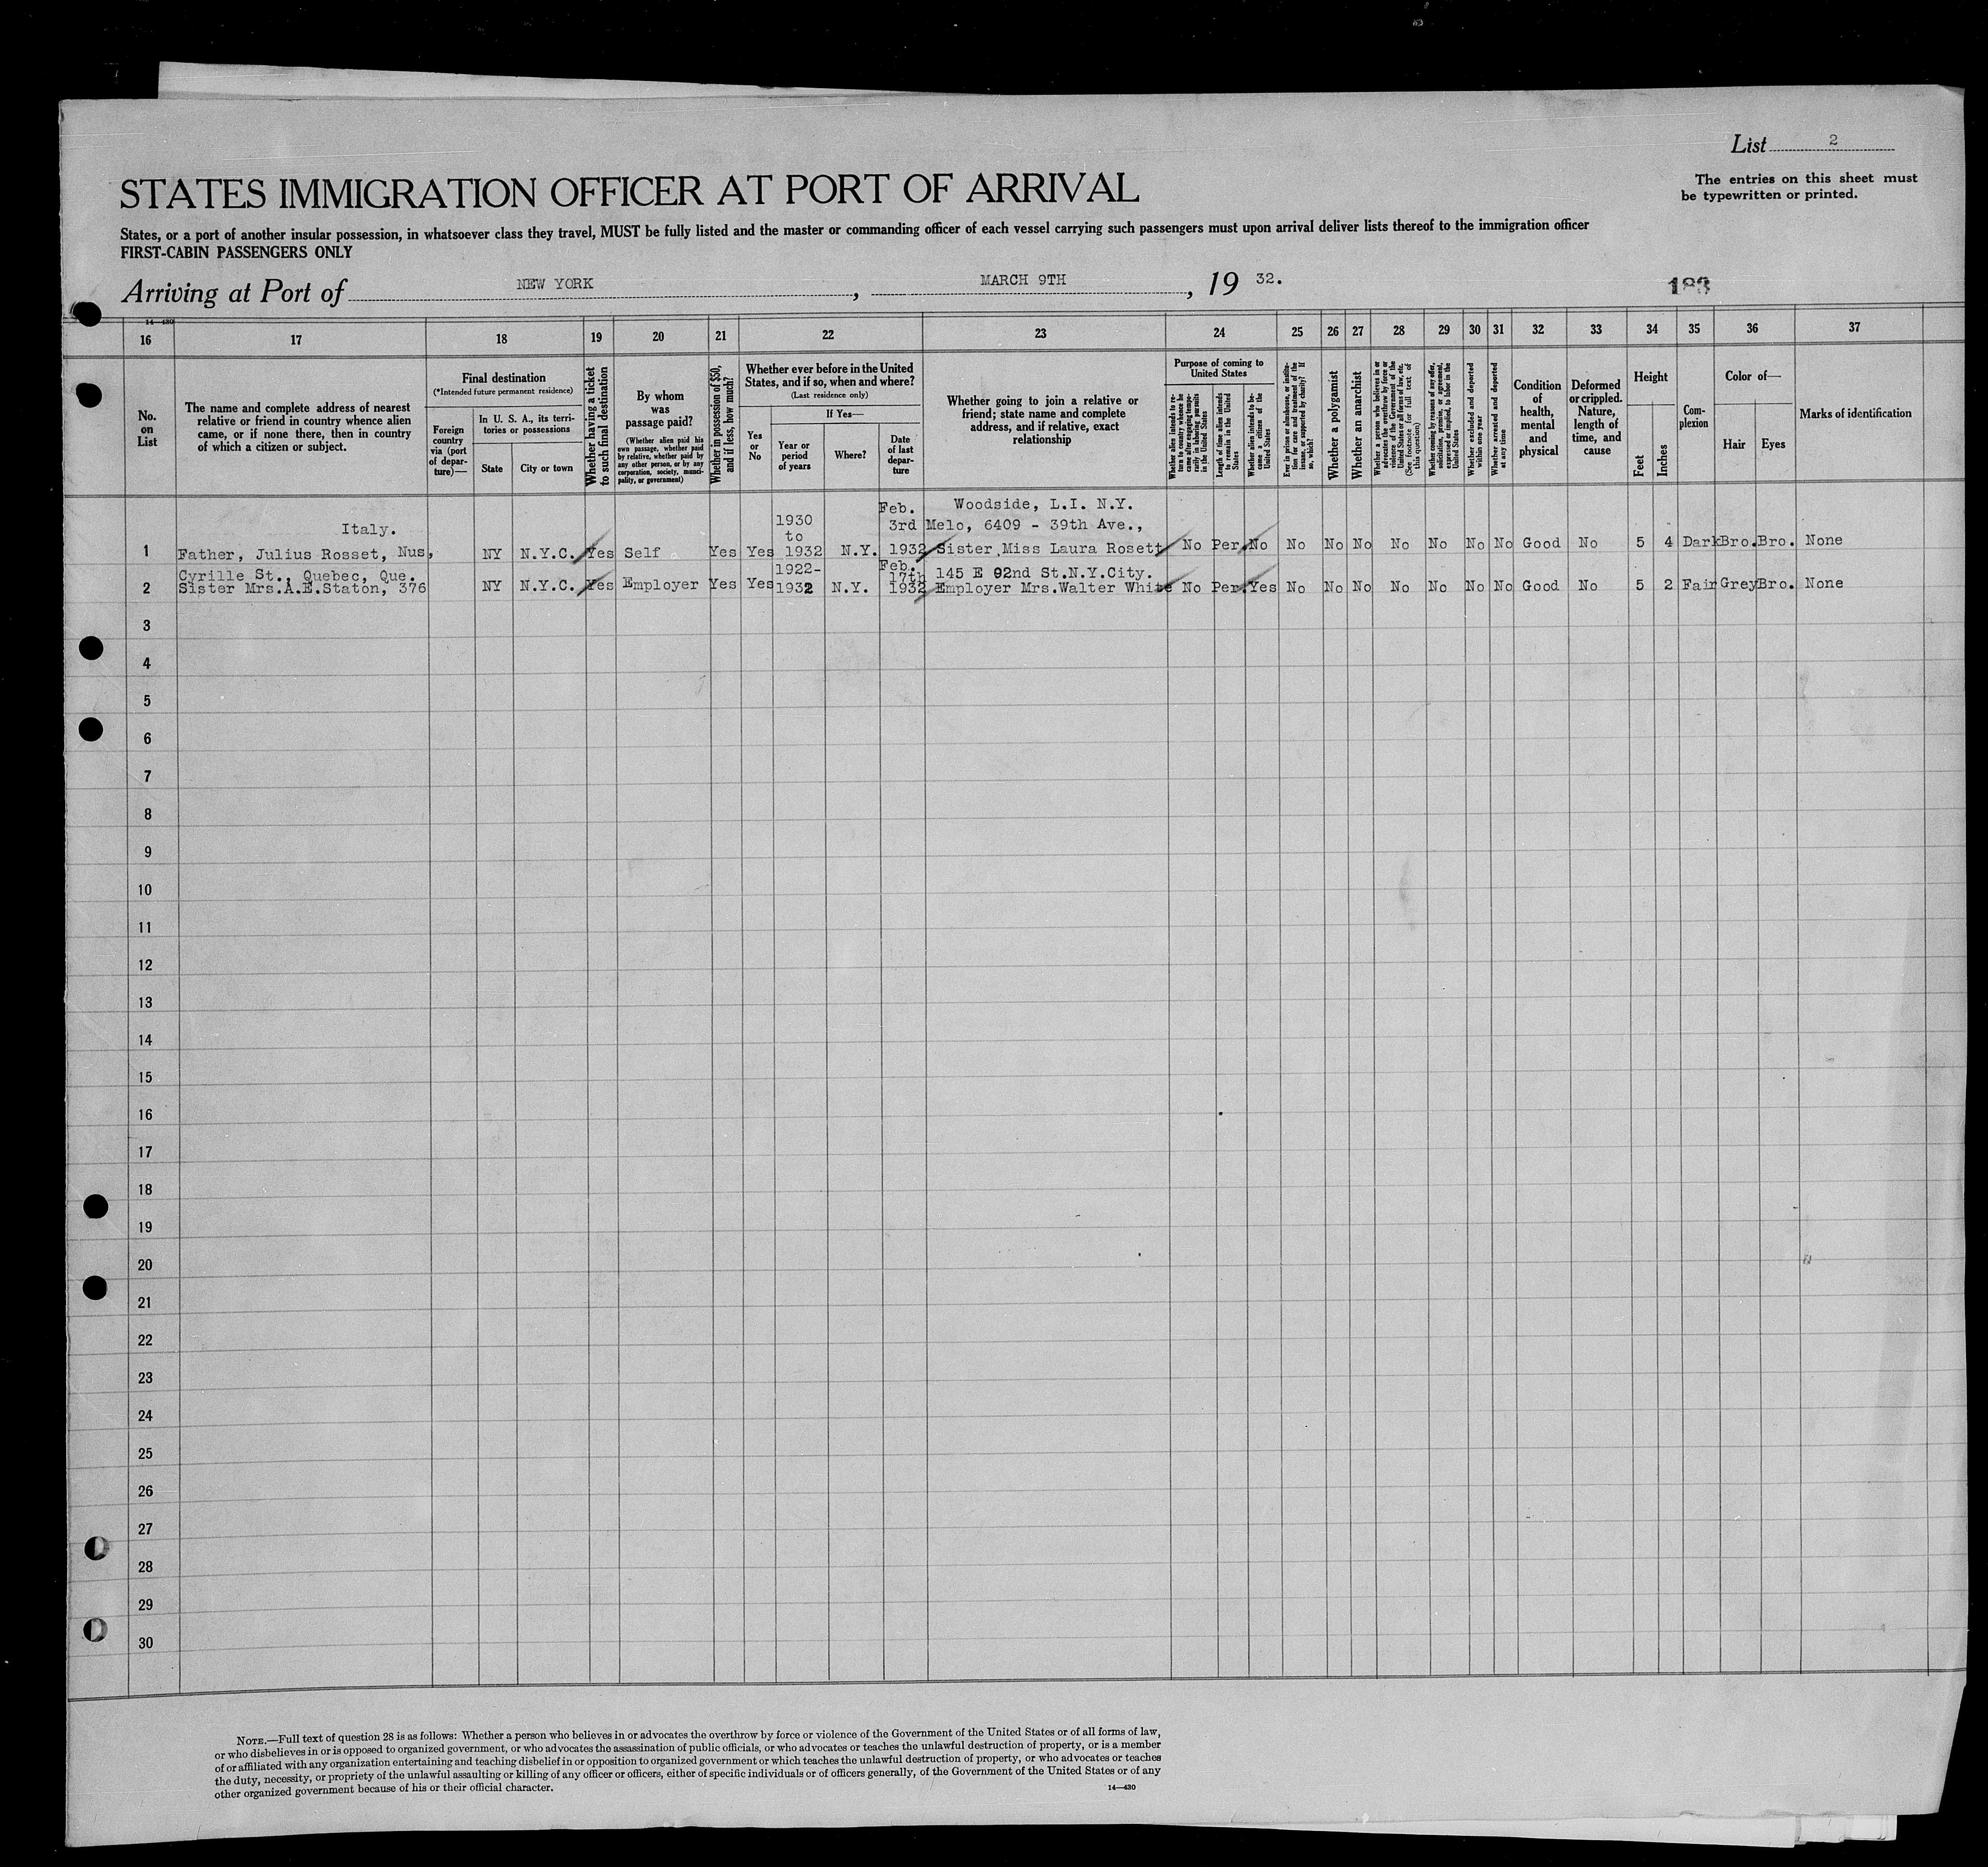 List 2
The entries on this sheet must
be typewritten or printed.
STATES IMMIGRATION OFFICER AT PORT OF ARRIVAL
States, or a port of another insular possession, in whatsoever class they travel, MUST be fully listed and the master or commanding officer of each vessel carrying such passengers must upon arrival deliver lists thereof to the immigration officer
FIRST-CABIN PASSENGERS ONLY
Arriving at Port of NEW YORK, MARCH 9TH, 19 32.
183
14-430
16 17 18 19 20 21 22 23 24 25 26 27 28 29 30 31 32 33 34 35 36 37
No.
on
List
The name and complete address of nearest
relative or friend in country whence alien
came, or if none there, then in country
of which a citizen or subject.
Final destination
(*Intended future permanent residence)
Foreign
country
via (port
of depar-
ture)—
In U. S. A., its terri-
tories or possessions
State
City or town
Whether having a ticket
to such final destination
By whom
was
passage paid?
(Whether alien paid his
own passage, whether paid
by relative, whether paid by
any other person, or by any
corporation, society, munici-
pality, or government)
Whether in possession of $50,
and if less, how much?
Whether ever before in the United
States, and if so, when and where?
(Last residence only)
Yes
or
No
If Yes—
Year or
period
of years
Where?
Date
of last
depar-
ture
Whether going to join a relative or
friend; state name and complete
address, and if relative, exact
relationship
Purpose of coming to
United States
Whether alien intends to re-
turn to country whence he
came after engaging tempo-
rarily in laboring pursuits
in the United States
Length of time alien intends
to remain in the United
States
Whether alien intends to be-
come a citizen of the
United States
Ever in prison or almshouse, or institu-
tion for care and treatment of the
insane, or supported by charity? If
so, which?
Whether a polygamist
Whether an anarchist
Whether a person who believes in or
advocates the overthrow by force or
violence of the Government of the
United States or all forms of law, etc.
(See footnote for full text of
this question)
Whether coming by reasons of any offer,
solicitation, promise, or agreement,
expressed or implied, to labor in the
United States
Whether excluded and deported
within one year
Whether arrested and deported
at any time
Condition
of
health,
mental
and
physical
Deformed
or crippled.
Nature,
length of
time, and
cause
Height
Feet
Inches
Com-
plexion
Color of—
Hair
Eyes
Marks of identification
1 Italy.
Father, Julius Rosset, Nus, NY N.Y.C. Yes Self Yes Yes 1930
to
1932 N.Y. Feb.
3rd
1932 Woodside, L.I. N.Y.
Melo, 6409 - 39th Ave.,
Sister Miss Laura Rosett No Per. No No No No No No No No Good No 5 4 Dark Bro. Bro. None
2 Cyrille St., Quebec, Que.
Sister Mrs.A.E.Staton, 376 NY N.Y.C. Yes Employer Yes Yes 1922-
1932 N.Y. Feb.
17th
1932 145 E 92nd St.N.Y.City.
Employer Mrs.Walter White No Per. Yes No No No No No No No Good No 5 2 Fair Grey Bro. None
3
4
5
6
7
8
9
10
11
12
13
14
15
16
17
18
19
20
21
22
23
24
25
26
27
28
29
30
NOTE.—Full text of question 28 is as follows: Whether a person who believes in or advocates the overthrow by force or violence of the Government of the United States or of all forms of law,
or who disbelieves in or is opposed to organized government, or who advocates the assassination of public officials, or who advocates or teaches the unlawful destruction of property, or is a member
of or affiliated with any organization entertaining and teaching disbelief in or opposition to organized government or which teaches the unlawful destruction of property, or who advocates or teaches
the duty, necessity, or propriety of the unlawful assaulting or killing of any officer or officers, either of specific individuals or of officers generally, of the Government of the United States or of any
other organized government because of his or their official character.
14—430